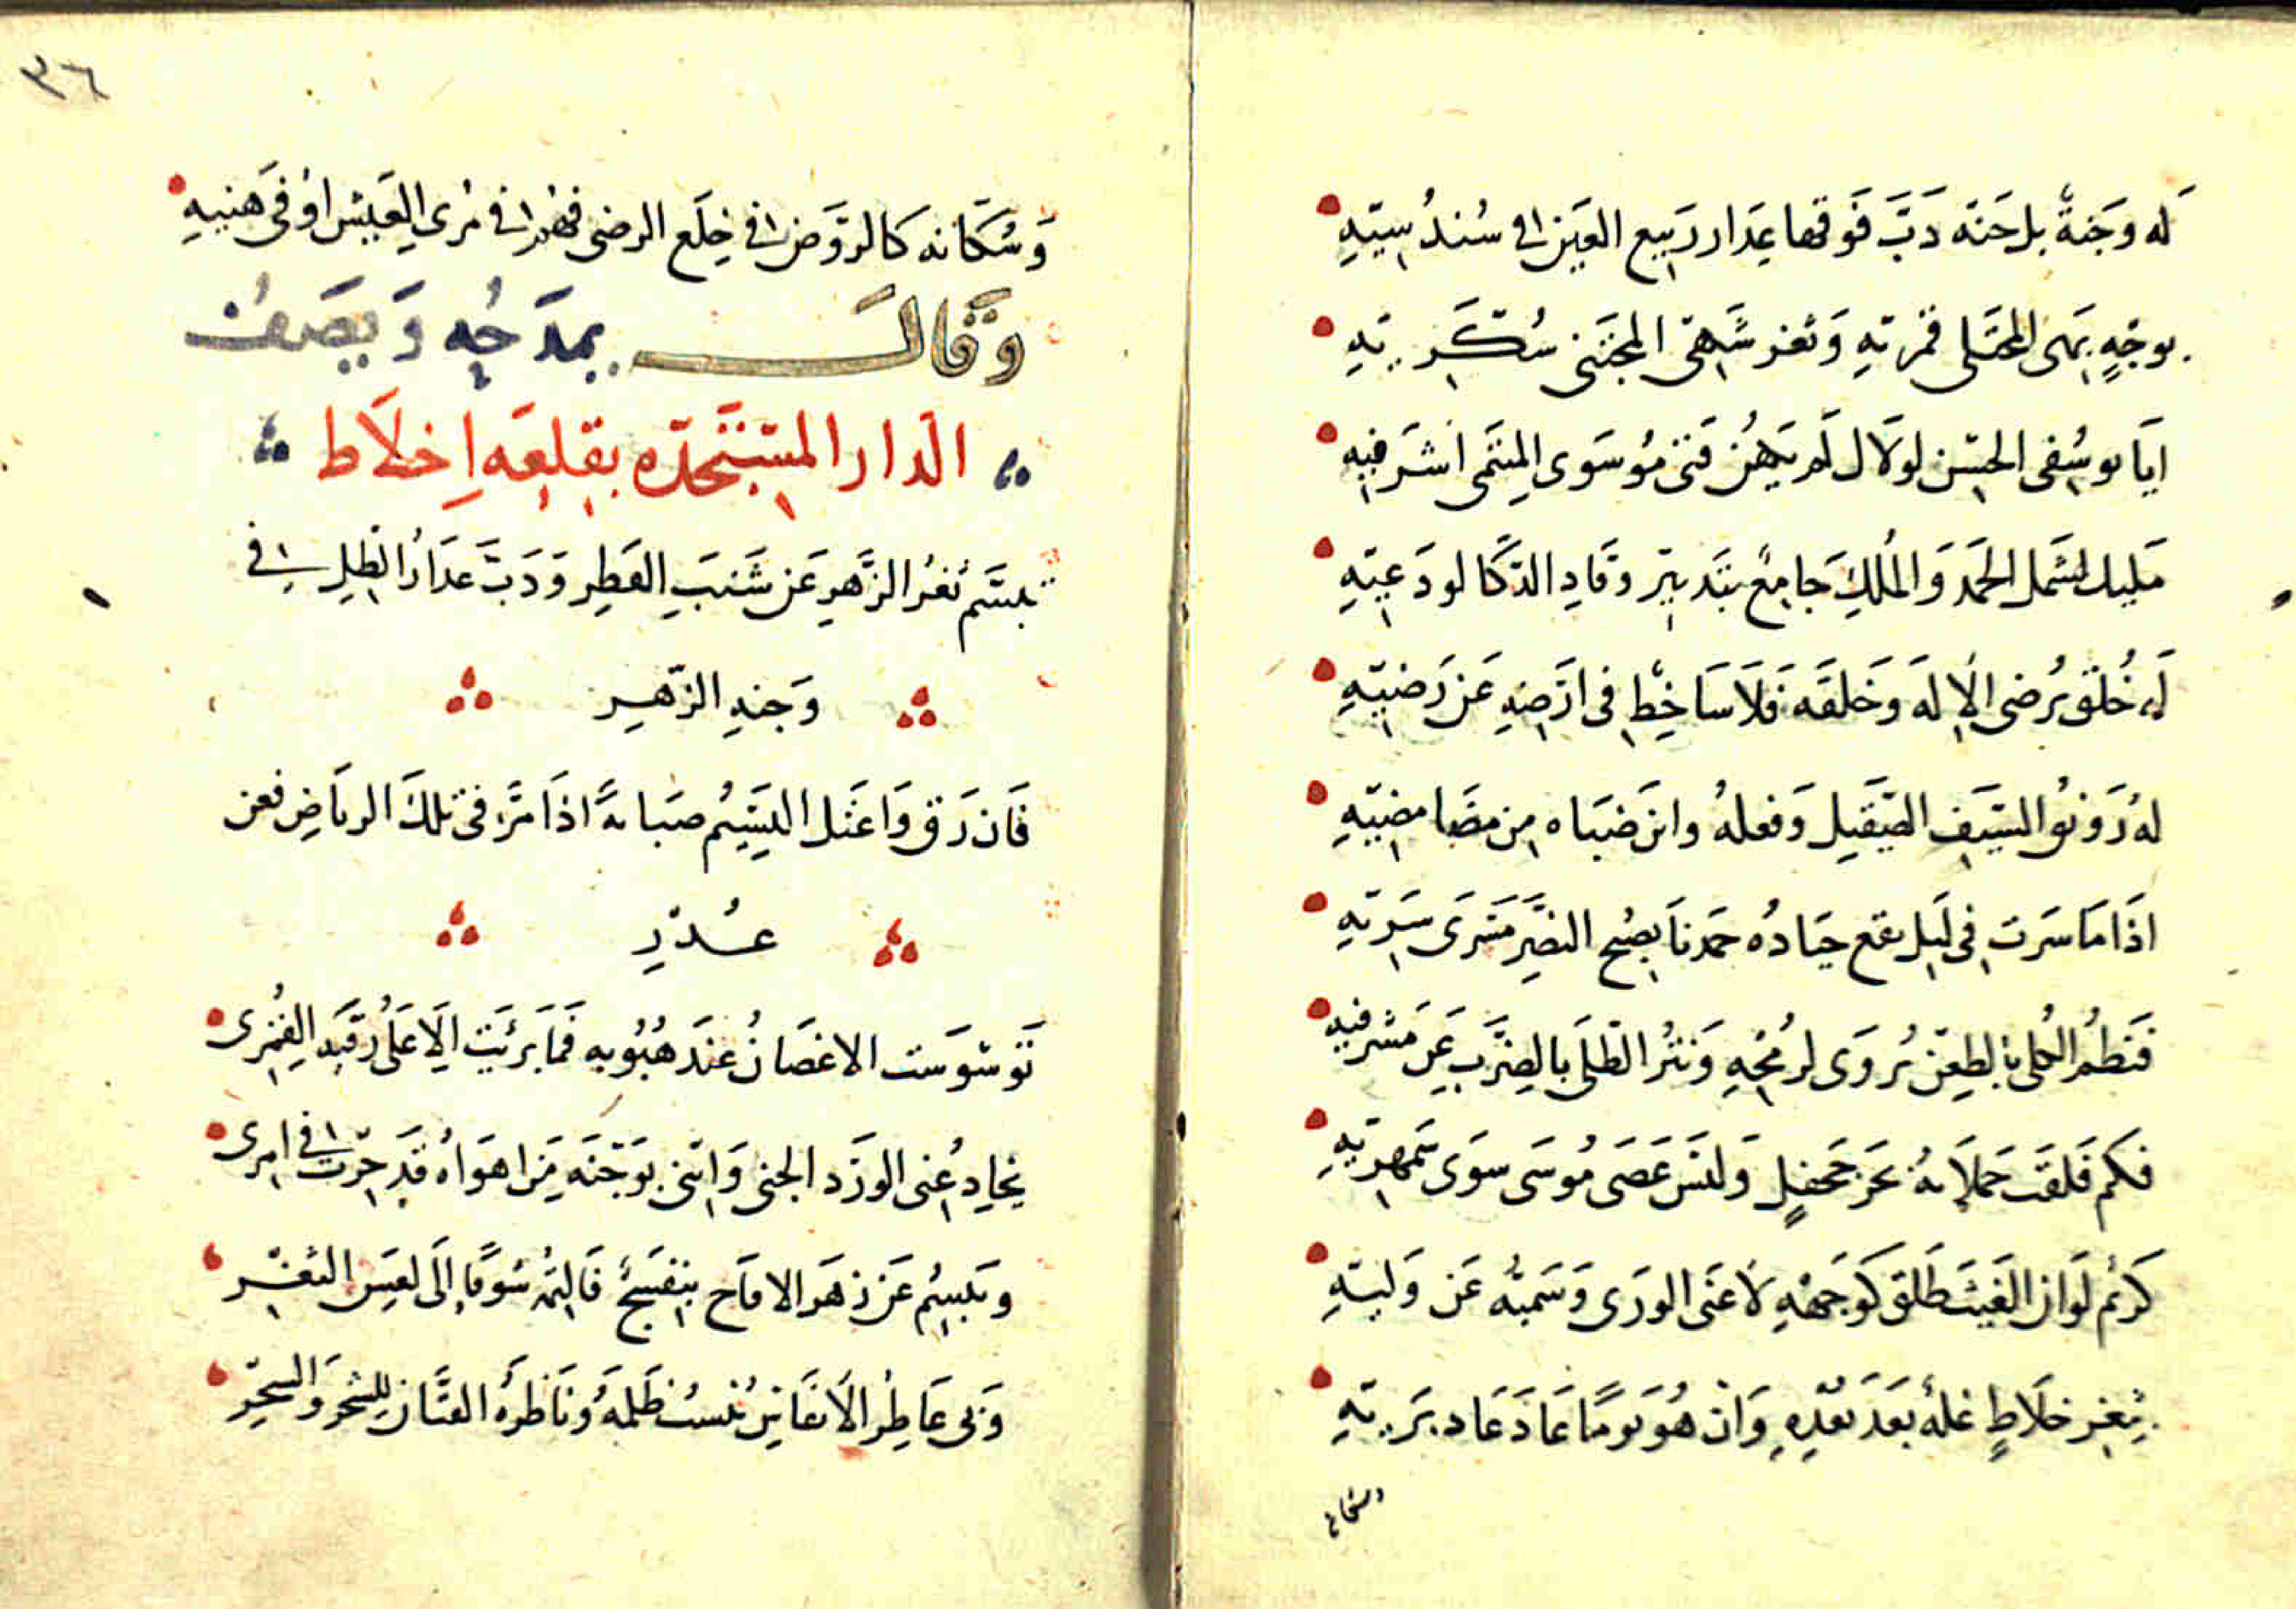 له وجنة بل جنة دب فوقها عذار ربيع العين في سندسيته
بوجه بهي المجتلى قمريه وثغر شهي المجتنى سكريه
ايا يوسفي الحسن لولاك لم يهن فتى موسوي المنتمى اشرفيه
مليك لشمل الحمد والملك جامع بتدبير وقاد الذكا لوذعيه
له خلق يرضى الاله وخلقه فلا ساخط في ارضه عن رضيه
له رونق السيف الصقيل وفعله واين ضباه من مضا مضيه
اذا ما سرت في ليل نقع جياده حمدنا بصبح النصر مسرى سريه
فنظم الكلى بالطعن يروى لرمحه ونثر الطلى بالضرب عن مشرفيه
فكم فلقت حملاته بحر جحفل وليس عصى موسى سوى سمهريه
كريم لو ان الغيث طلق كوجهه لاغنى الورى وسميه عن وليه
بثغر خلاط غله بعد بعده وان هو يوما عاد عاد بريه
٣٦
وسكانه كالروض في خلع الرضى فهم في مرى العيش او في هنيه
وقال يمدحه ويصف
الدار المستنجده بقلعه اخلاط
تبسم ثغر الزهر عن شنب القطر ودب عذار الظل في
وجنه الزهر
فان رق واعتل النسيم صبابة اذا مر في تلك الرياض فعن
عذر
توسوست الاغصان عند هبوبه فما برئت الا على رقيه القمرى
الورد الجنى بوجنه من اهواه قد حرت في امرى
ويبسم عن زهر الاقاح بنفسج فالثمه شوقا الى لعس الثغر
وبى عاطر الانفاس ظلمه وناظره الفتان للسحر والسحر